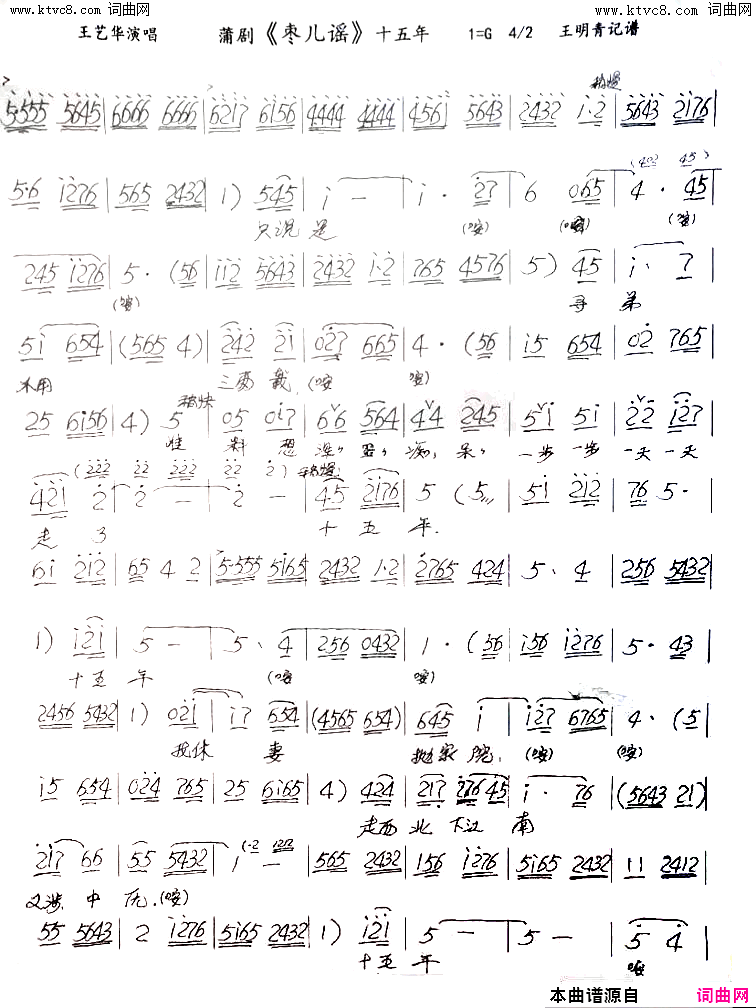 www.ktvc8.com 词曲网 www.ktvc8.com 词曲网
王艺华演唱 蒲剧《枣儿谣》十五年 1=G 4/2 王明青记谱
稍慢
5·555 5645 | 6666 6666 | 6217 6156 | 4444 4444 | 4561 5643 | 2432 1·2 | 5643 2176
5·6 1276 | 565 2432 | 1) 545 | i — | i · 27 | 6 065 | 4 · 45
只说是 (唉) (唉) (唉)
245 1276 | 5 · (56 | 112 5643 | 2432 1·2 | 765 4576 | 5) 45 | i · 7
(唉) 哥弟
5i 654 | (565 4) | 242 2i | 027 665 | 4 · (56 | i5 654 | 02 765
不用 三两载 (唉) (唉)
稍快
25 6i56 | 4) 5 | 05 0i7 | 6 6 564 | 4 4 245 | 5 i 5i | 2 2 i27
谁料想 一步一步 一天一天
(222 22 222 22 2)
42i 2 | 2 — | 2 — | 45 2176 | 5 (5 | 5i 2i2 | 76 5·
走了 十五年.
6i 2i2 | 65 4 2 | 5·555 5i65 | 2432 1·2 | 2765 424 | 5 · 4 | 256 5432
1) i2i | 5 — | 5 · 4 | 256 0432 | 1 · (56 | i56 i276 | 5 · 43
十五年 (唉) 唉)
2456 5432 | 1) 02i | i7 654 | (4565 654) | 645 i | i27 6765 | 4 · (5
我休妻 抛家院, (唉) (唉)
i5 654 | 024 765 | 25 6i65 | 4) 424 | 217 27645 | i · 76 | (5643 21)
走西北下江南
217 66 | 55 5432 | 1 — | 565 2432 | 156 i276 | 5i65 2432 | 11 2412
又涉中原.(唉)
55 5643 | 2 i276 | 5i65 2432 | 1) i2i | 5 — | 5 — | 5 4
十五年 唉
本曲谱源自 词曲网